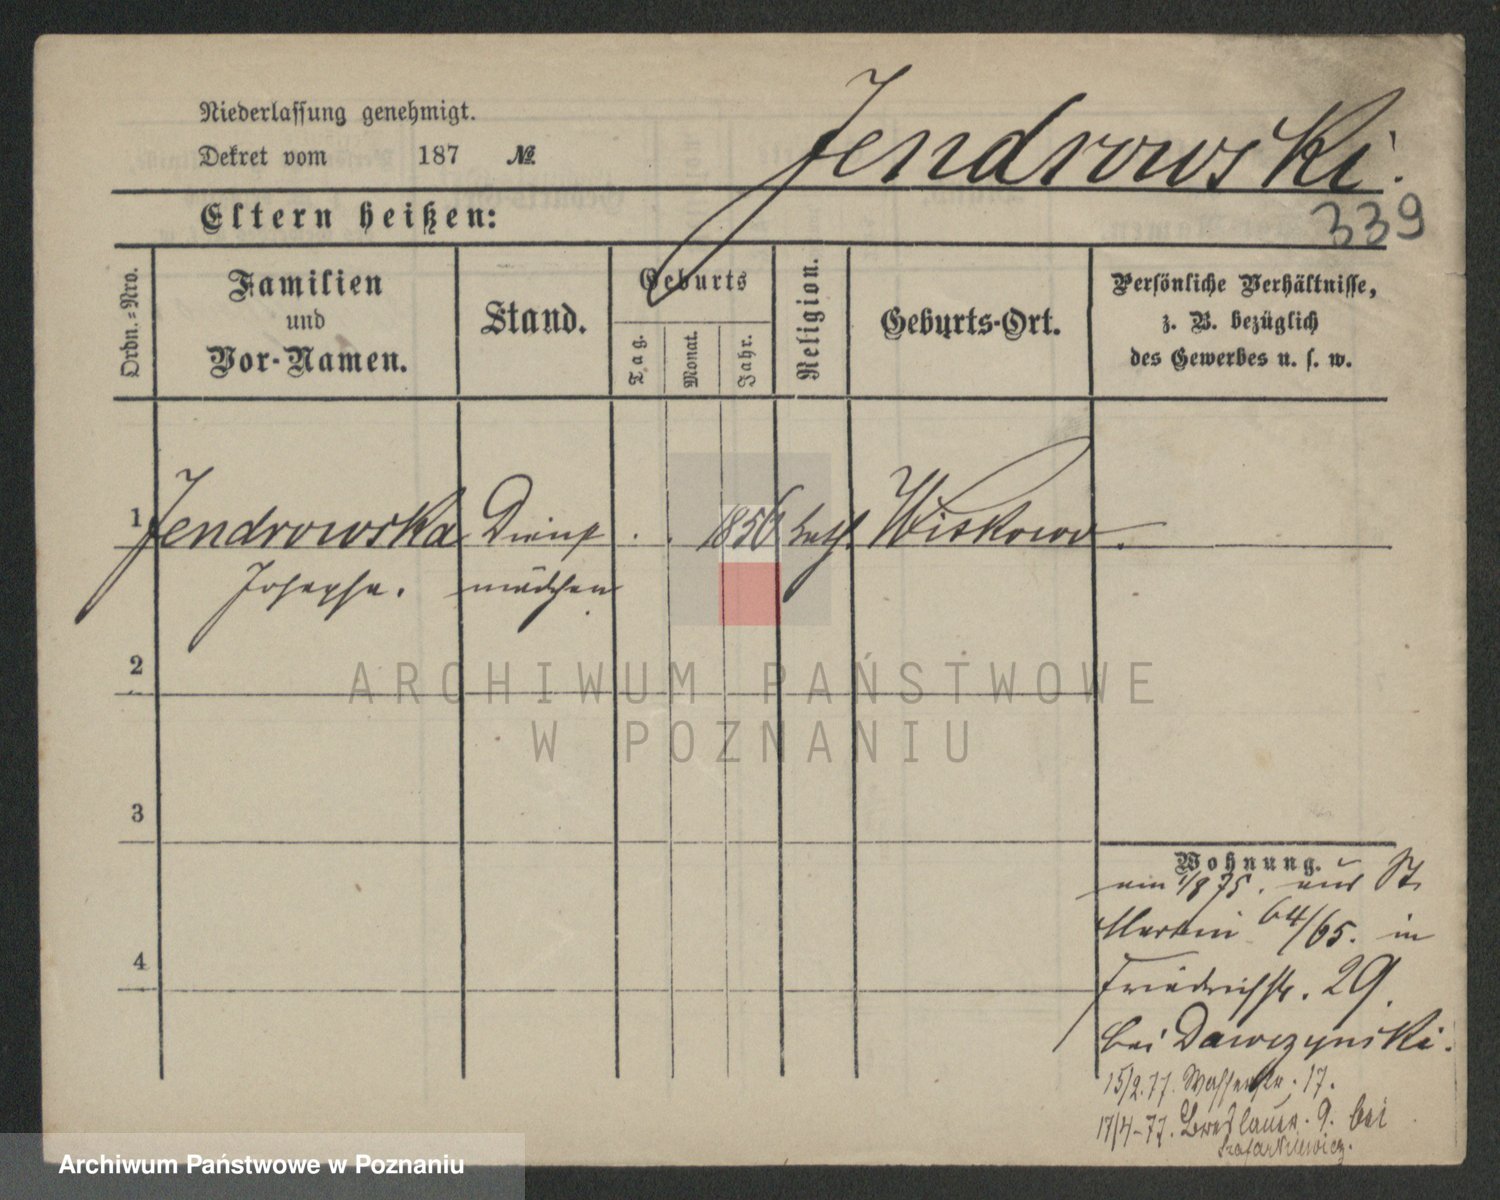 Niederlassung genehmigt.
Dekret vom 187 №
Jendrowski.
339
Eltern heißen:
Ordn.-Nro.
Familien
und
Vor-Namen.
Stand.
Geburts
Tag.
Monat.
Jahr.
Religion.
Geburts-Ort.
Persönliche Verhältnisse,
z. B. bezüglich
des Gewerbes u. s. w.
1 Jendrowska Dienst . . 1856 kath. Wiskowo.
Josepha. mädchen
2
ARCHIWUM PAŃSTWOWE
W POZNANIU
3
Wohnung.
am 1/8 75. aus St.
Martin 64/65. in
4
Friedrichstr. 29.
bei Dawczynski.
15/2.77. Wasserstr. 17.
17/4-77. Breslauer. 9. bei
Szafarkiewicz.
Archiwum Państwowe w Poznaniu